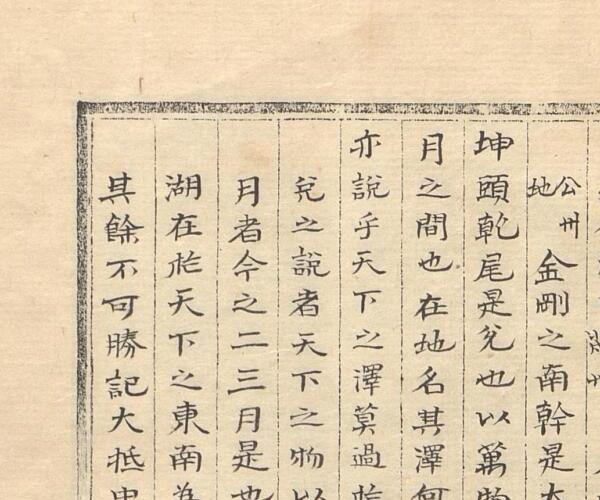 公州
地
金剛之南幹是
坤頭乾尾是兌也以萬物
月之間也在地名其澤
亦說乎天下之澤莫過於
兌之說者天下之物以
月者今之二三月是也
湖在於天下之東南為
其餘不可勝記大抵